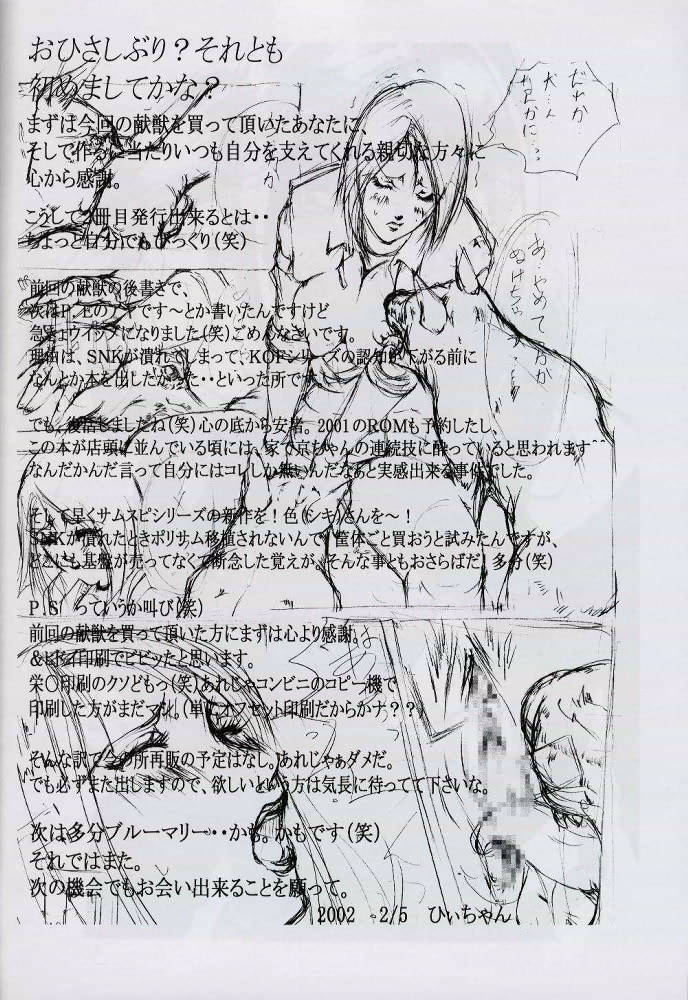 おひさしぶり？それとも
初めましてかな？
まずは今回の献獣を買って頂いたあなたに、
そして作るに当たりいつも自分を支えてくれる親切な方々に
心から感謝。
こうして2冊目発行出来るとは・・
ちょっと自分でもびっくり(笑)
前回の献獣の後書きで、
次はP.Eのアヤです～とか書いたんですけど
急きょウイップになりました(笑)ごめんなさいです。
理由は、SNKが潰れてしまって、KOFシリーズの認知が下がる前に
なんとか本を出したかった・・といった所です。
でも、復活しましたね(笑)心の底から安堵。2001のROMも予約したし、
この本が店頭に並んでいる頃には、家で京ちゃんの連続技に酔っていると思われます^^
なんだかんだ言って自分にはコレしか無いんだなあと実感出来る事件でした。
そして早くサムスピシリーズの新作を！色(シキ)さんを～！
SNKが潰れたときポリサム移植されないんで、筐体ごと買おうと試みたんですが、
どこにも基盤が売ってなくて断念した覚えが。そんな事ともおさらばだ、多分(笑)
P.S っていうか叫び(笑)
前回の献獣を買って頂いた方にまずは心より感謝。
&ヒドイ印刷でビビッたと思います。
栄〇印刷のクソどもっ(笑)あれじゃコンビニのコピー機で
印刷した方がまだマシ。(単にオフセット印刷だからかナ？？)
そんな訳で今の所再販の予定はなし。あれじゃぁダメだ。
でも必ずまた出しますので、欲しいという方は気長に待ってて下さいな。
次は多分ブルーマリー・・かも。かもです(笑)
それではまた。
次の機会でもお会い出来ることを願って。
2002 2/5 ひぃちゃん
だれか
あ、やめて